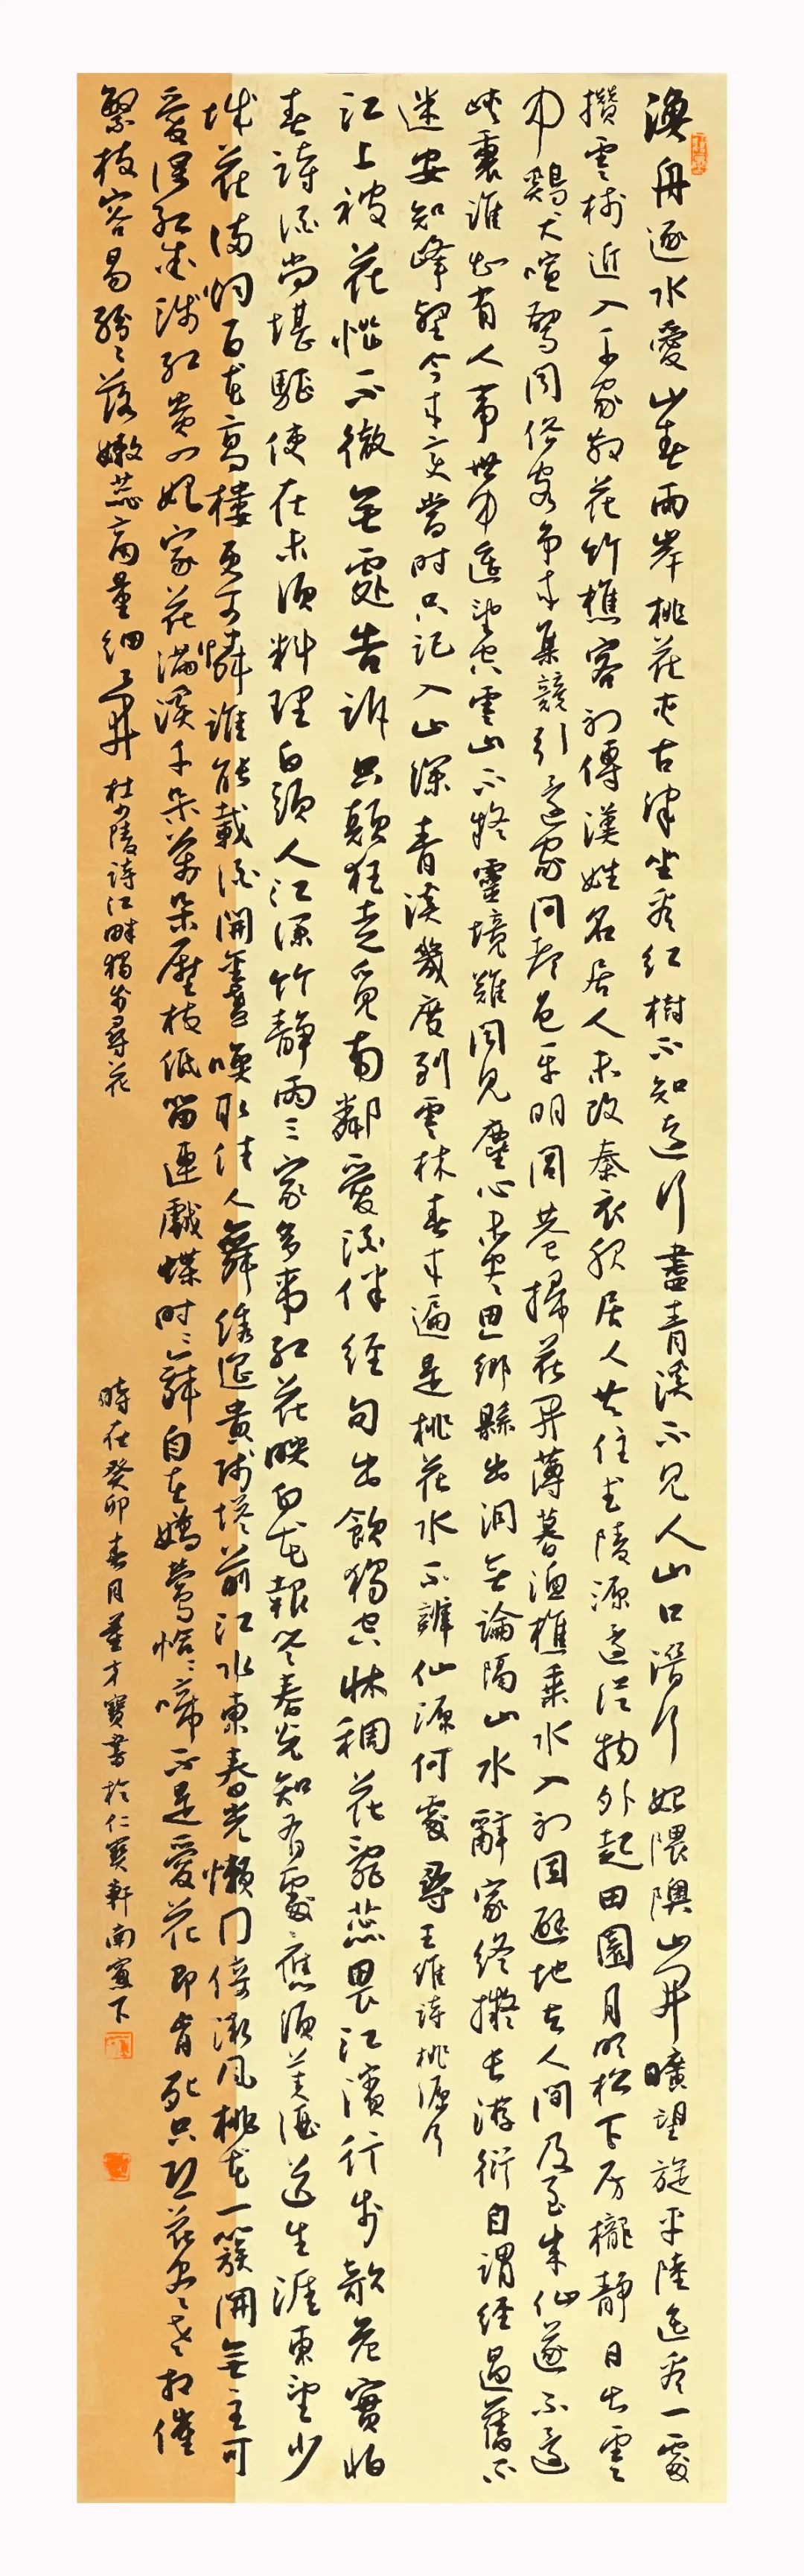 漁舟逐水愛山春兩岸桃花夾古津坐看紅樹不知遠行盡青溪不見人山口潛行始隈隩山開曠望旋平陸遙看一處
攢雲樹近入千家散花竹樵客初傳漢姓名居人未改秦衣服居人共住武陵源還從物外起田園月明松下房櫳靜日出雲
中雞犬喧驚聞俗客爭來集競引還家問都邑平明閭巷掃花開薄暮漁樵乘水入初因避地去人間及至成仙遂不還
峽裏誰知有人事世中遙望空雲山不疑靈境難聞見塵心未盡思鄉縣出洞無論隔山水辭家終擬長游衍自謂經過舊不
迷安知峰壑今來變當時只記入山深青溪幾度到雲林春來遍是桃花水不辨仙源何處尋王維詩桃源行
江上被花惱不徹無處告訴只顛狂走覓南鄰愛酒伴經旬出飲獨空牀稠花亂蕊畏江濱行步欹危實怕
春詩酒尚堪驅使在未須料理白頭人江深竹靜兩三家多事紅花映白花報答春光知有處應須美酒送生涯東望少
城花滿烟百花高樓更可憐誰能載酒開金盞喚取佳人舞繡筵黃師塔前江水東春光懶困倚微風桃花一簇開無主可
愛深紅愛淺紅黃四娘家花滿溪千朵萬朵壓枝低留連戲蝶時時舞自在嬌鶯恰恰啼不是愛花即肯死只恐花盡老相催
繁枝容易紛紛落嫩蕊商量細細開杜少陵詩江畔獨步尋花
時在癸卯春月董才寶書於仁寶軒南窗下